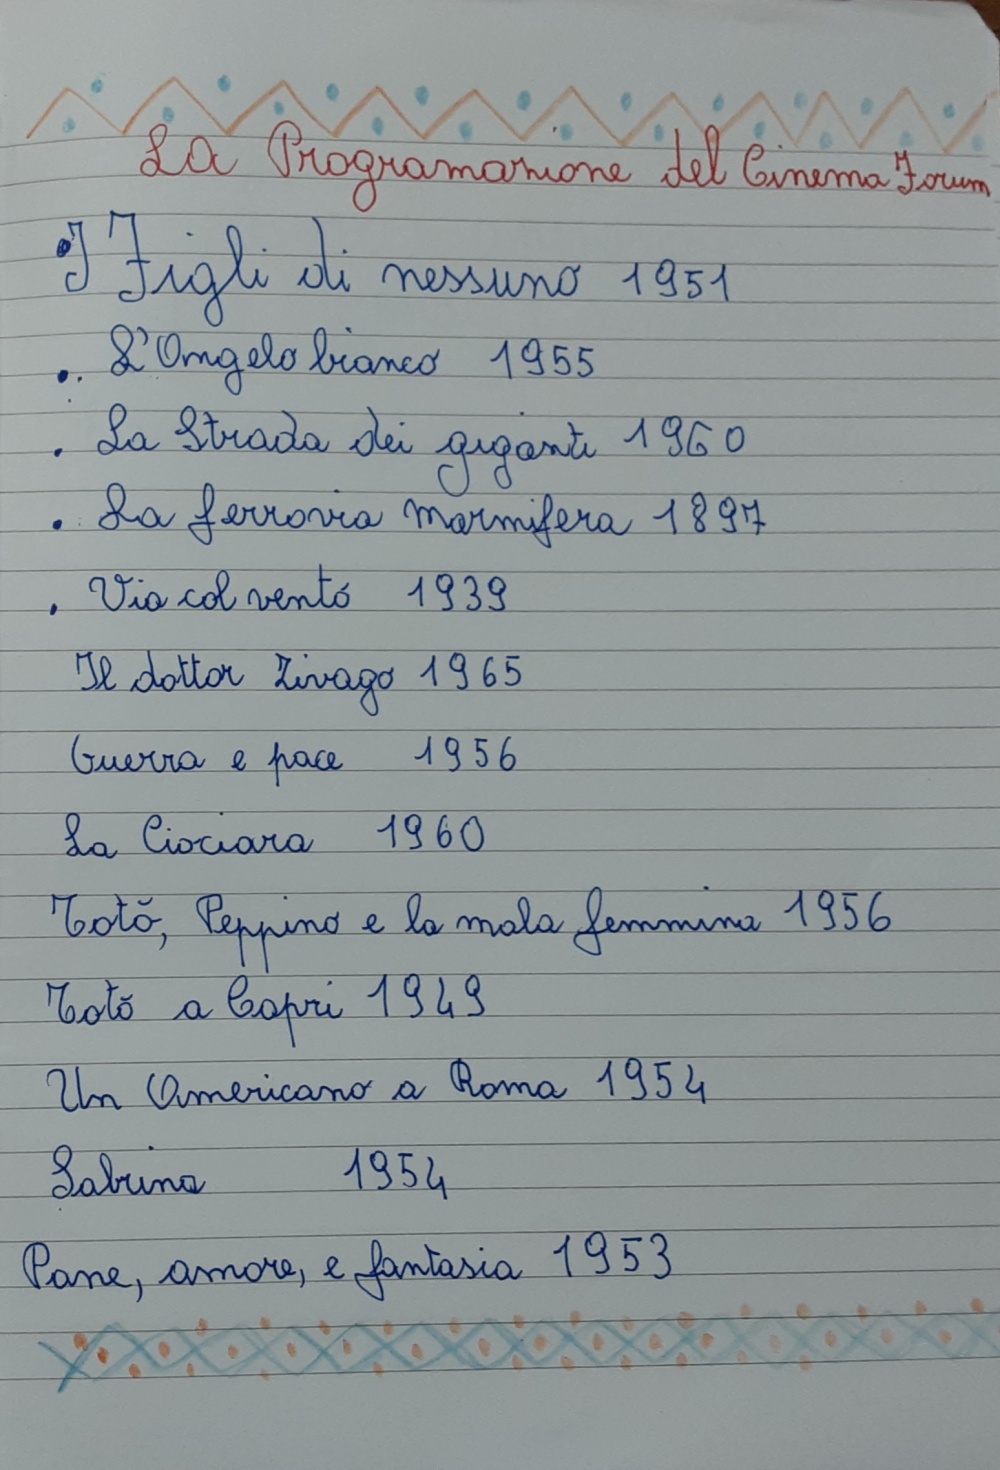 La Programazione del Cinema Forum
• I Figli di nessuno 1951
• L'Angelo bianco 1955
• La Strada dei giganti 1960
• La ferrovia marmifera 1897
• Via col vento 1939
Il dottor Zivago 1965
Guerra e pace 1956
La Ciociara 1960
Totò, Peppino e la mala femmina 1956
Totò a Capri 1949
Un Americano a Roma 1954
Sabrina 1954
Pane, amore, e fantasia 1953